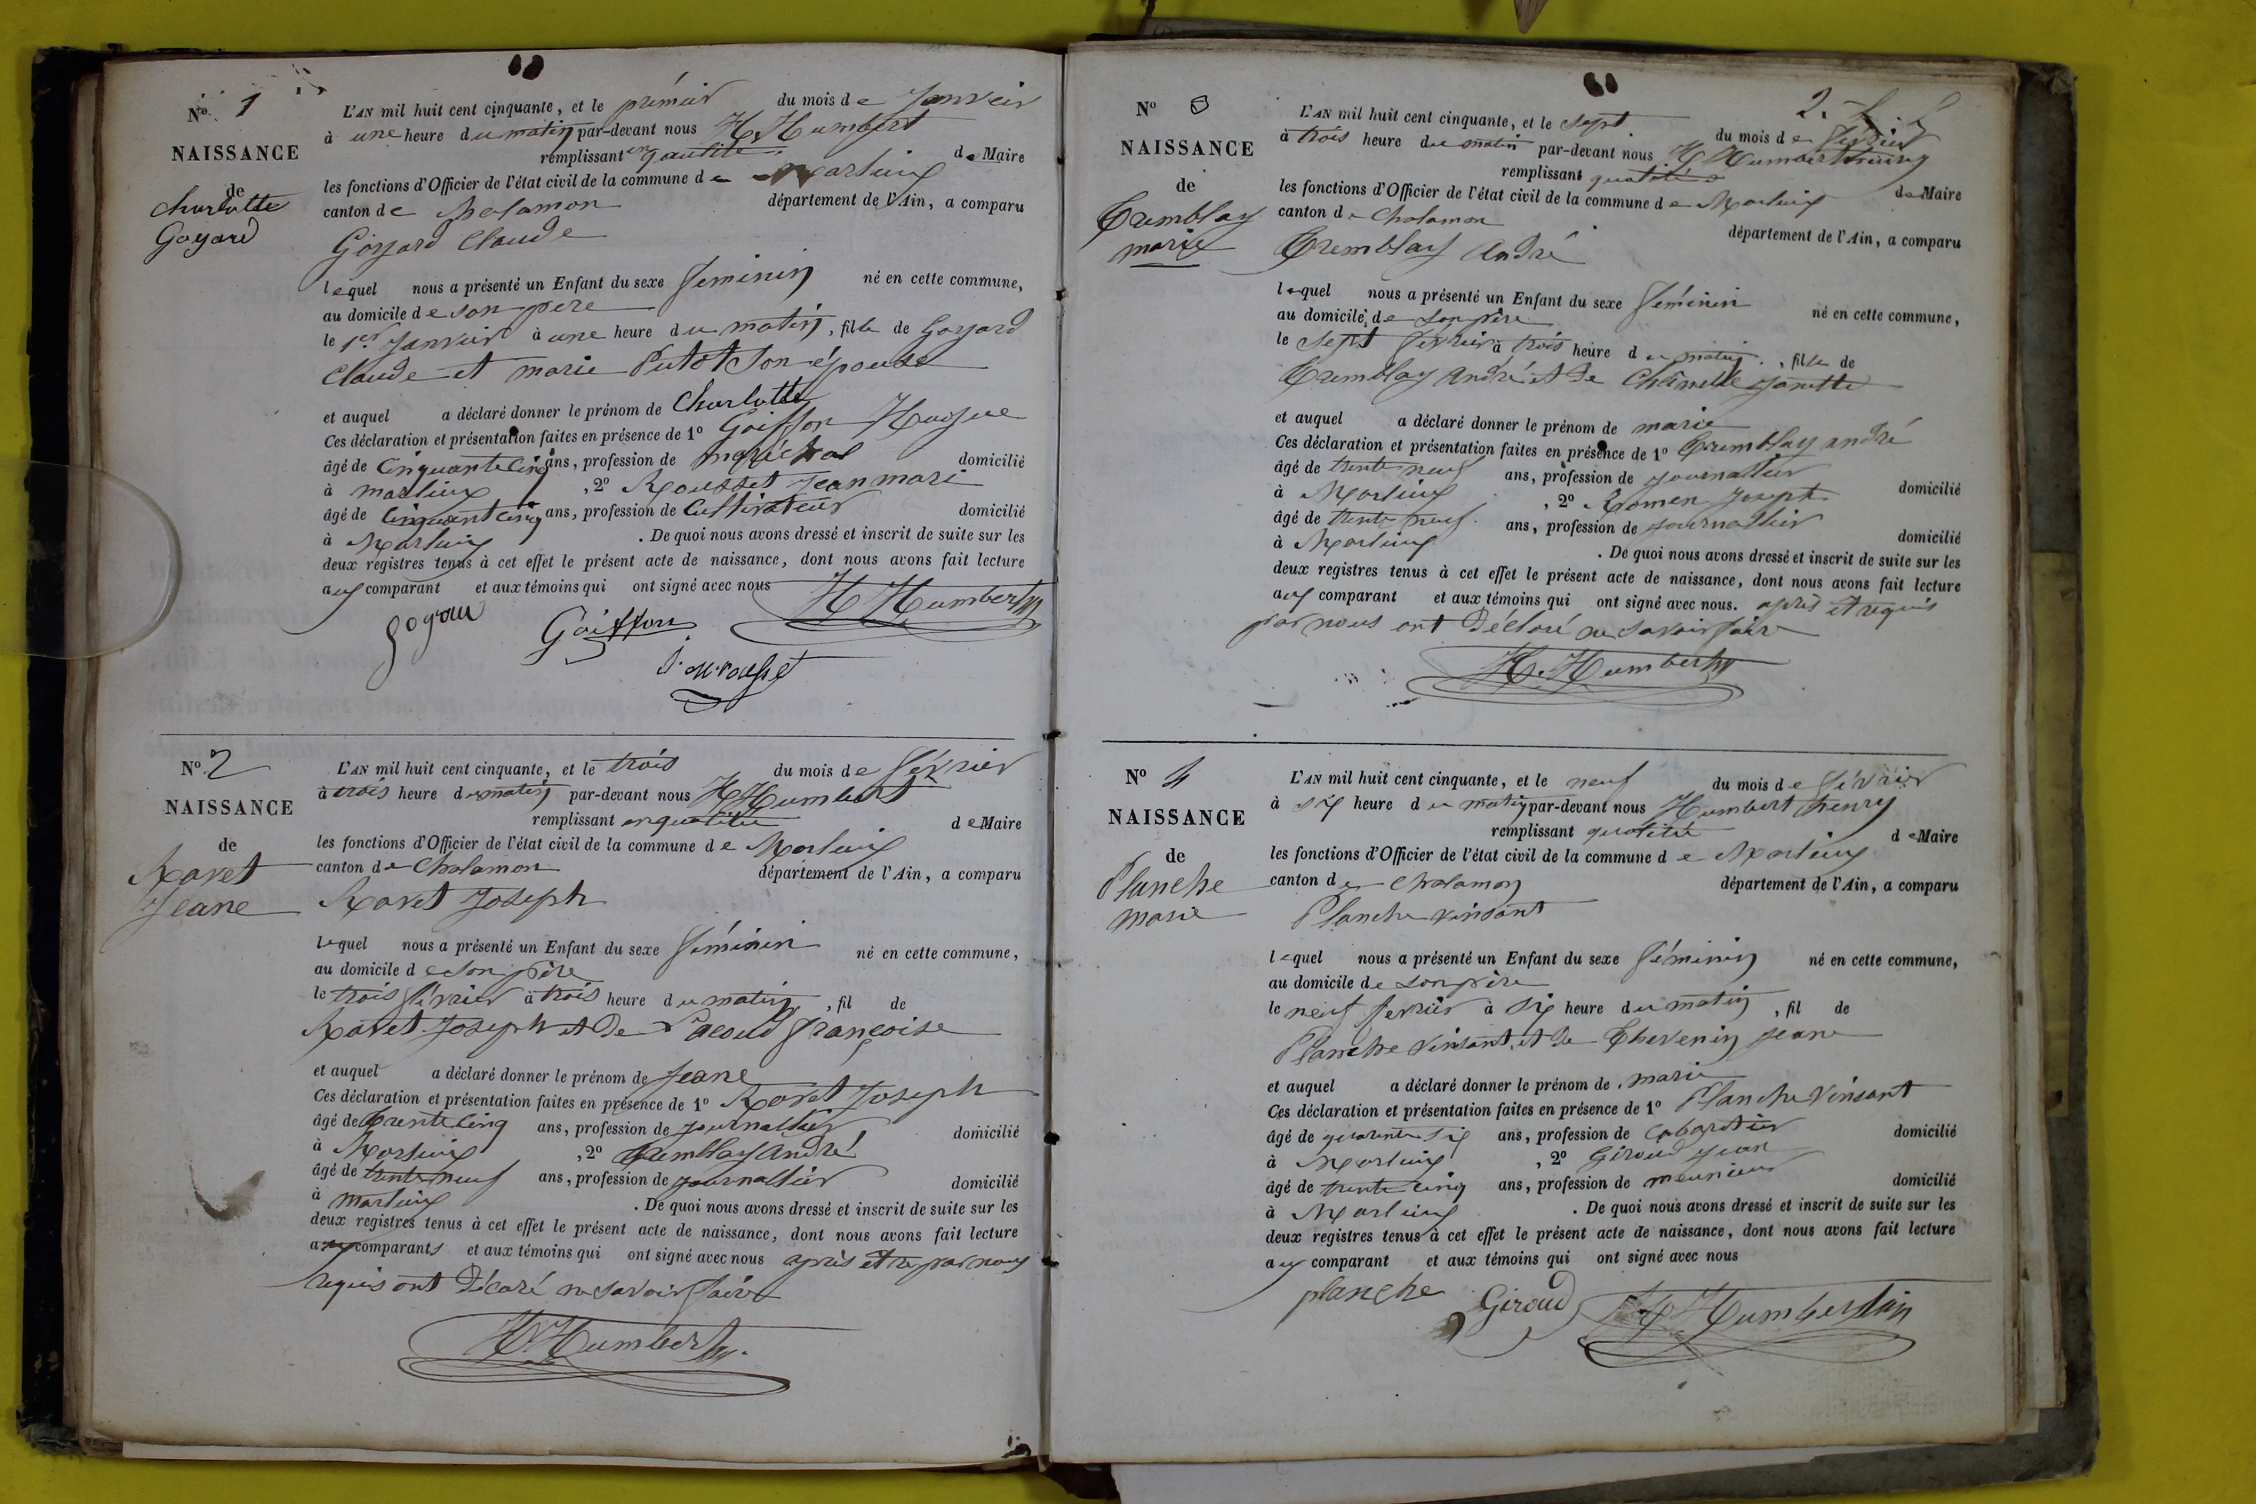 N° 1
NAISSANCE
de
Charlotte
Goyard
L'AN mil huit cent cinquante, et le prémier du mois de Janvier
à une heure du matin par-devant nous H. Humbert
remplissant en qautité de Maire
les fonctions d'Officier de l'état civil de la commune de Marlieux
canton de Chalamon département de l'Ain, a comparu
Goyard Claude
lequel nous a présenté un Enfant du sexe féminin né en cette commune,
au domicile de son père
le 1er Janvier à une heure du matin, fille de Goyard
Claude et marie Putot Son épouse
et auquel a déclaré donner le prénom de Charlotte
Ces déclaration et présentation faites en présence de 1° Goiffon Hugue
âgé de Cinquante Cinq ans, profession de maréchal domicilié
à marlieux, 2° Rousset Jean mari
âgé de Cinquant Cinq ans, profession de Cultivateur domicilié
à Marlieux. De quoi nous avons dressé et inscrit de suite sur les
deux registres tenus à cet effet le présent acte de naissance, dont nous avons fait lecture
aux comparant et aux témoins qui ont signé avec nous
Goiffon H Humbert
N° 2
NAISSANCE
de
Ravet
Jeane
L'AN mil huit cent cinquante, et le trois du mois de février
à trois heure du matin par-devant nous H Humbert
remplissant en qualité de Maire
les fonctions d'Officier de l'état civil de la commune de Marlieux
canton de Chalamon département de l'Ain, a comparu
Ravet Joseph
lequel nous a présenté un Enfant du sexe féminin né en cette commune,
au domicile de son père
le trois février à trois heure du matin, fil de
Ravet Joseph et de Pacoud françoise
et auquel a déclaré donner le prénom de Jeane
Ces déclaration et présentation faites en présence de 1° Ravet Joseph
âgé de trente Cinq ans, profession de journallier domicilié
à Marlieux, 2° Tremblay André
âgé de trente neuf ans, profession de journallier domicilié
à marlieux. De quoi nous avons dressé et inscrit de suite sur les
deux registres tenus à cet effet le présent acte de naissance, dont nous avons fait lecture
aux comparants et aux témoins qui ont signé avec nous après être par nous
requis ont décaré ne savoir faire
H. Humbert
N° 3
NAISSANCE
de
Tremblay
marie
L'AN mil huit cent cinquante, et le sept du mois de février
à trois heure du matin par-devant nous H Humbert henry
remplissant qualité de Maire
les fonctions d'Officier de l'état civil de la commune de Marlieux
canton de Chalamon département de l'Ain, a comparu
Tremblay André
lequel nous a présenté un Enfant du sexe féminin né en cette commune,
au domicile de son père
le Sept février à trois heure du matin, fille de
Tremblay André et de Janette
et auquel a déclaré donner le prénom de marie
Ces déclaration et présentation faites en présence de 1° Tremblay andré
âgé de trente neuf ans, profession de journallier domicilié
à Marlieux, 2° Romen Joseph
âgé de trente neuf ans, profession de journallier domicilié
à Marlieux. De quoi nous avons dressé et inscrit de suite sur les
deux registres tenus à cet effet le présent acte de naissance, dont nous avons fait lecture
aux comparant et aux témoins qui ont signé avec nous. après et requis
par nous ont déclaré ne savoir faire
H. Humbert
N° 4
NAISSANCE
de
Planche
marie
L'AN mil huit cent cinquante, et le neuf du mois de février
à six heure du matin par-devant nous Humbert henry
remplissant qualité de Maire
les fonctions d'Officier de l'état civil de la commune de Marlieux
canton de Chalamon département de l'Ain, a comparu
Planche Vinsant
lequel nous a présenté un Enfant du sexe féminin né en cette commune,
au domicile de son père
le neuf fevrier à six heure du matin, fil de
Planche Vinsant et de Thevenin Jeane
et auquel a déclaré donner le prénom de marie
Ces déclaration et présentation faites en présence de 1° Planche Vinsant
âgé de quarente six ans, profession de Cabartier domicilié
à Marlieux, 2° Giroud Jean
âgé de trente cinq ans, profession de meunieur domicilié
à Marlieux. De quoi nous avons dressé et inscrit de suite sur les
deux registres tenus à cet effet le présent acte de naissance, dont nous avons fait lecture
aux comparant et aux témoins qui ont signé avec nous
planche Giroud H Humbert